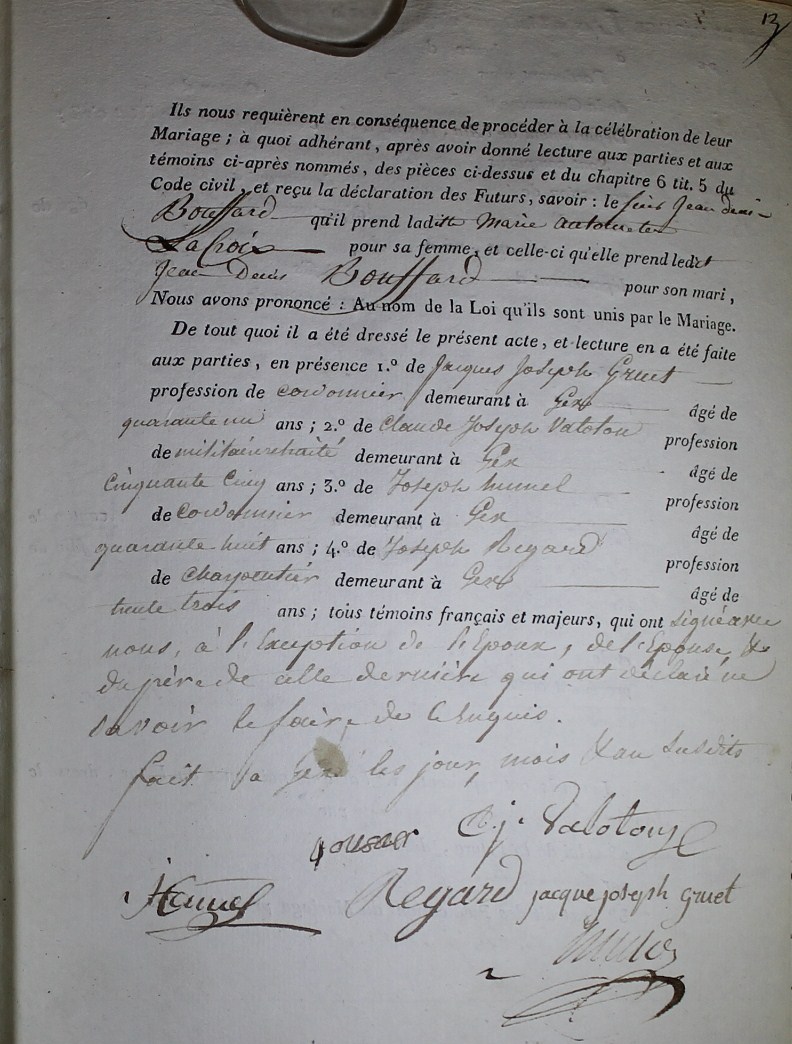 13
Ils nous requièrent en conséquence de procéder à la célébration de leur
Mariage ; à quoi adhérant, après avoir donné lecture aux parties et aux
témoins ci-après nommés, des pièces ci-dessus et du chapitre 6 tit. 5 du
Code civil, et reçu la déclaration des Futurs, savoir : le Jean denis
Bouffard qu'il prend ladite Marie antoinette
LaCroix pour sa femme, et celle-ci qu'elle prend ledit
Jean Denis Bouffard pour son mari,
Nous avons prononcé : Au nom de la Loi qu'ils sont unis par le Mariage.
De tout quoi il a été dressé le présent acte, et lecture en a été faite
aux parties, en présence 1.º de Jacques Joseph Gruet
profession de cordonnier demeurant à Gex âgé de
quarante un ans ; 2.º de Claude Joseph Valoton profession
de militaire retraité demeurant à Gex âgé de
Cinquante Cinq ans ; 3.º de Joseph profession
de Cordonnier demeurant à Gex âgé de
quarante huit ans ; 4.º de Joseph Regard profession
de Charpentier demeurant à Gex âgé de
trente trois ans ; tous témoins français et majeurs, qui ont signé avec
nous, à l'Exception de l'Epoux, de l'Epouse &
du père de cette dernière qui ont déclaré ne
savoir le faire, de ce enquis.
fait a Gex les jour, mois & an susdits
C. j. Valotony
Regard jacque joseph gruet